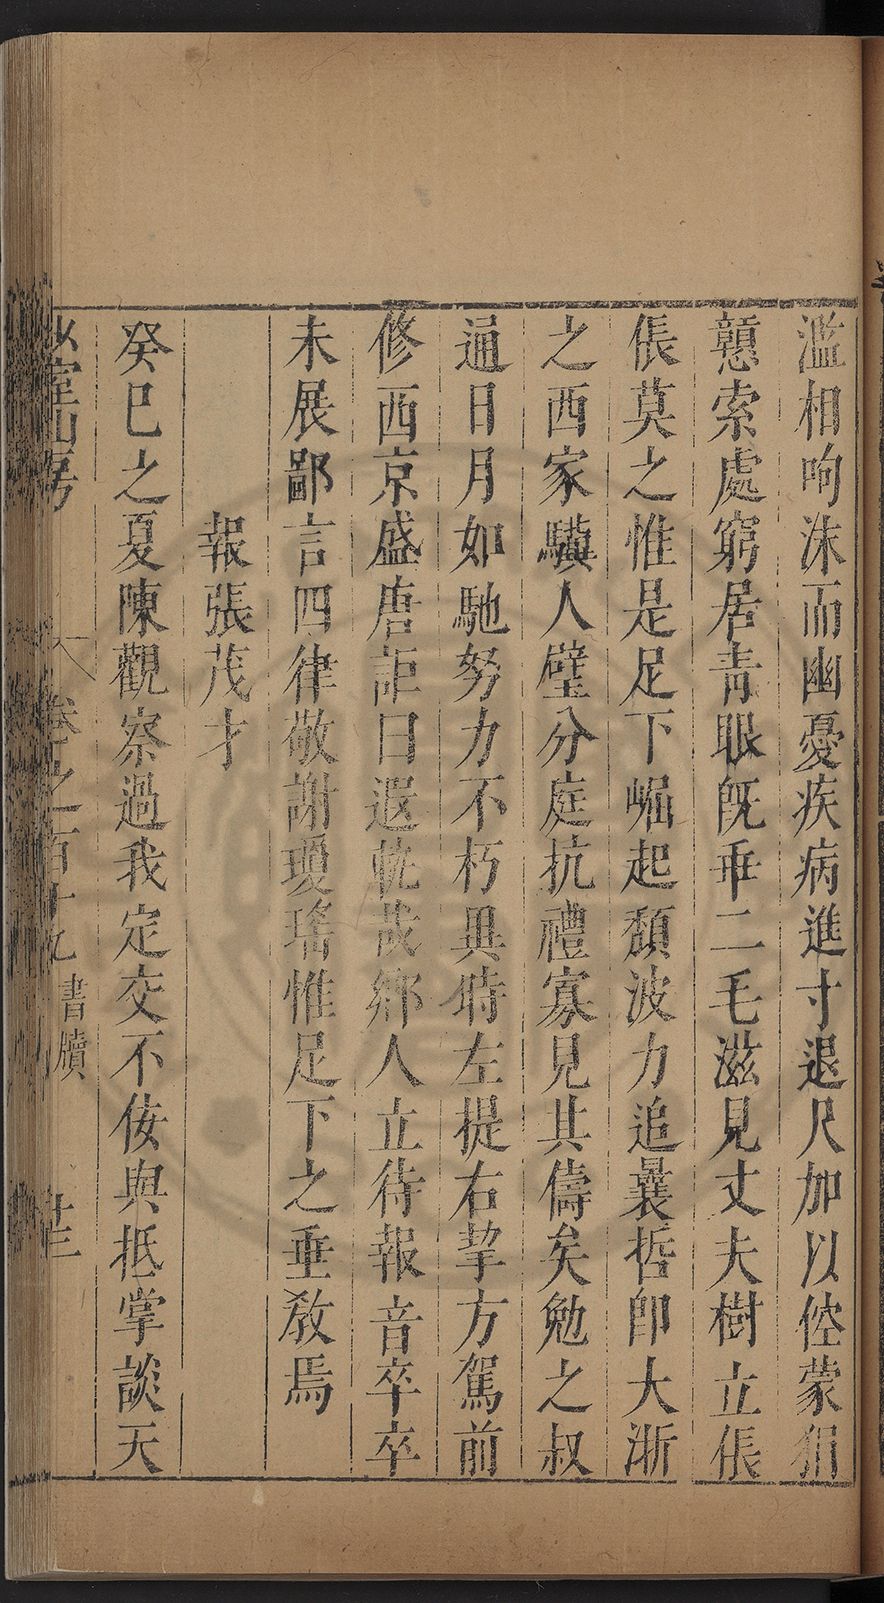 濫相呴沫而幽憂疾病進寸退尺加以倥蒙狷
戇索處窮居青眼旣垂二毛滋見丈夫樹立倀
倀莫之惟是足下崛起頹波力追曩哲卽大浙
之西家驥人璧分庭抗禮寡見其儔矣勉之叔
通日月如馳努力不朽異時左提右挈方駕前
修西京盛唐詎曰遐軼哉鄉人立待報音卒卒
未展鄙言四律敬謝瓊瑤惟足下之垂敎焉
報張茂才
癸巳之夏陳觀察過我定交不佞與抵掌談天
室山房
卷之百十九 書牘 十三